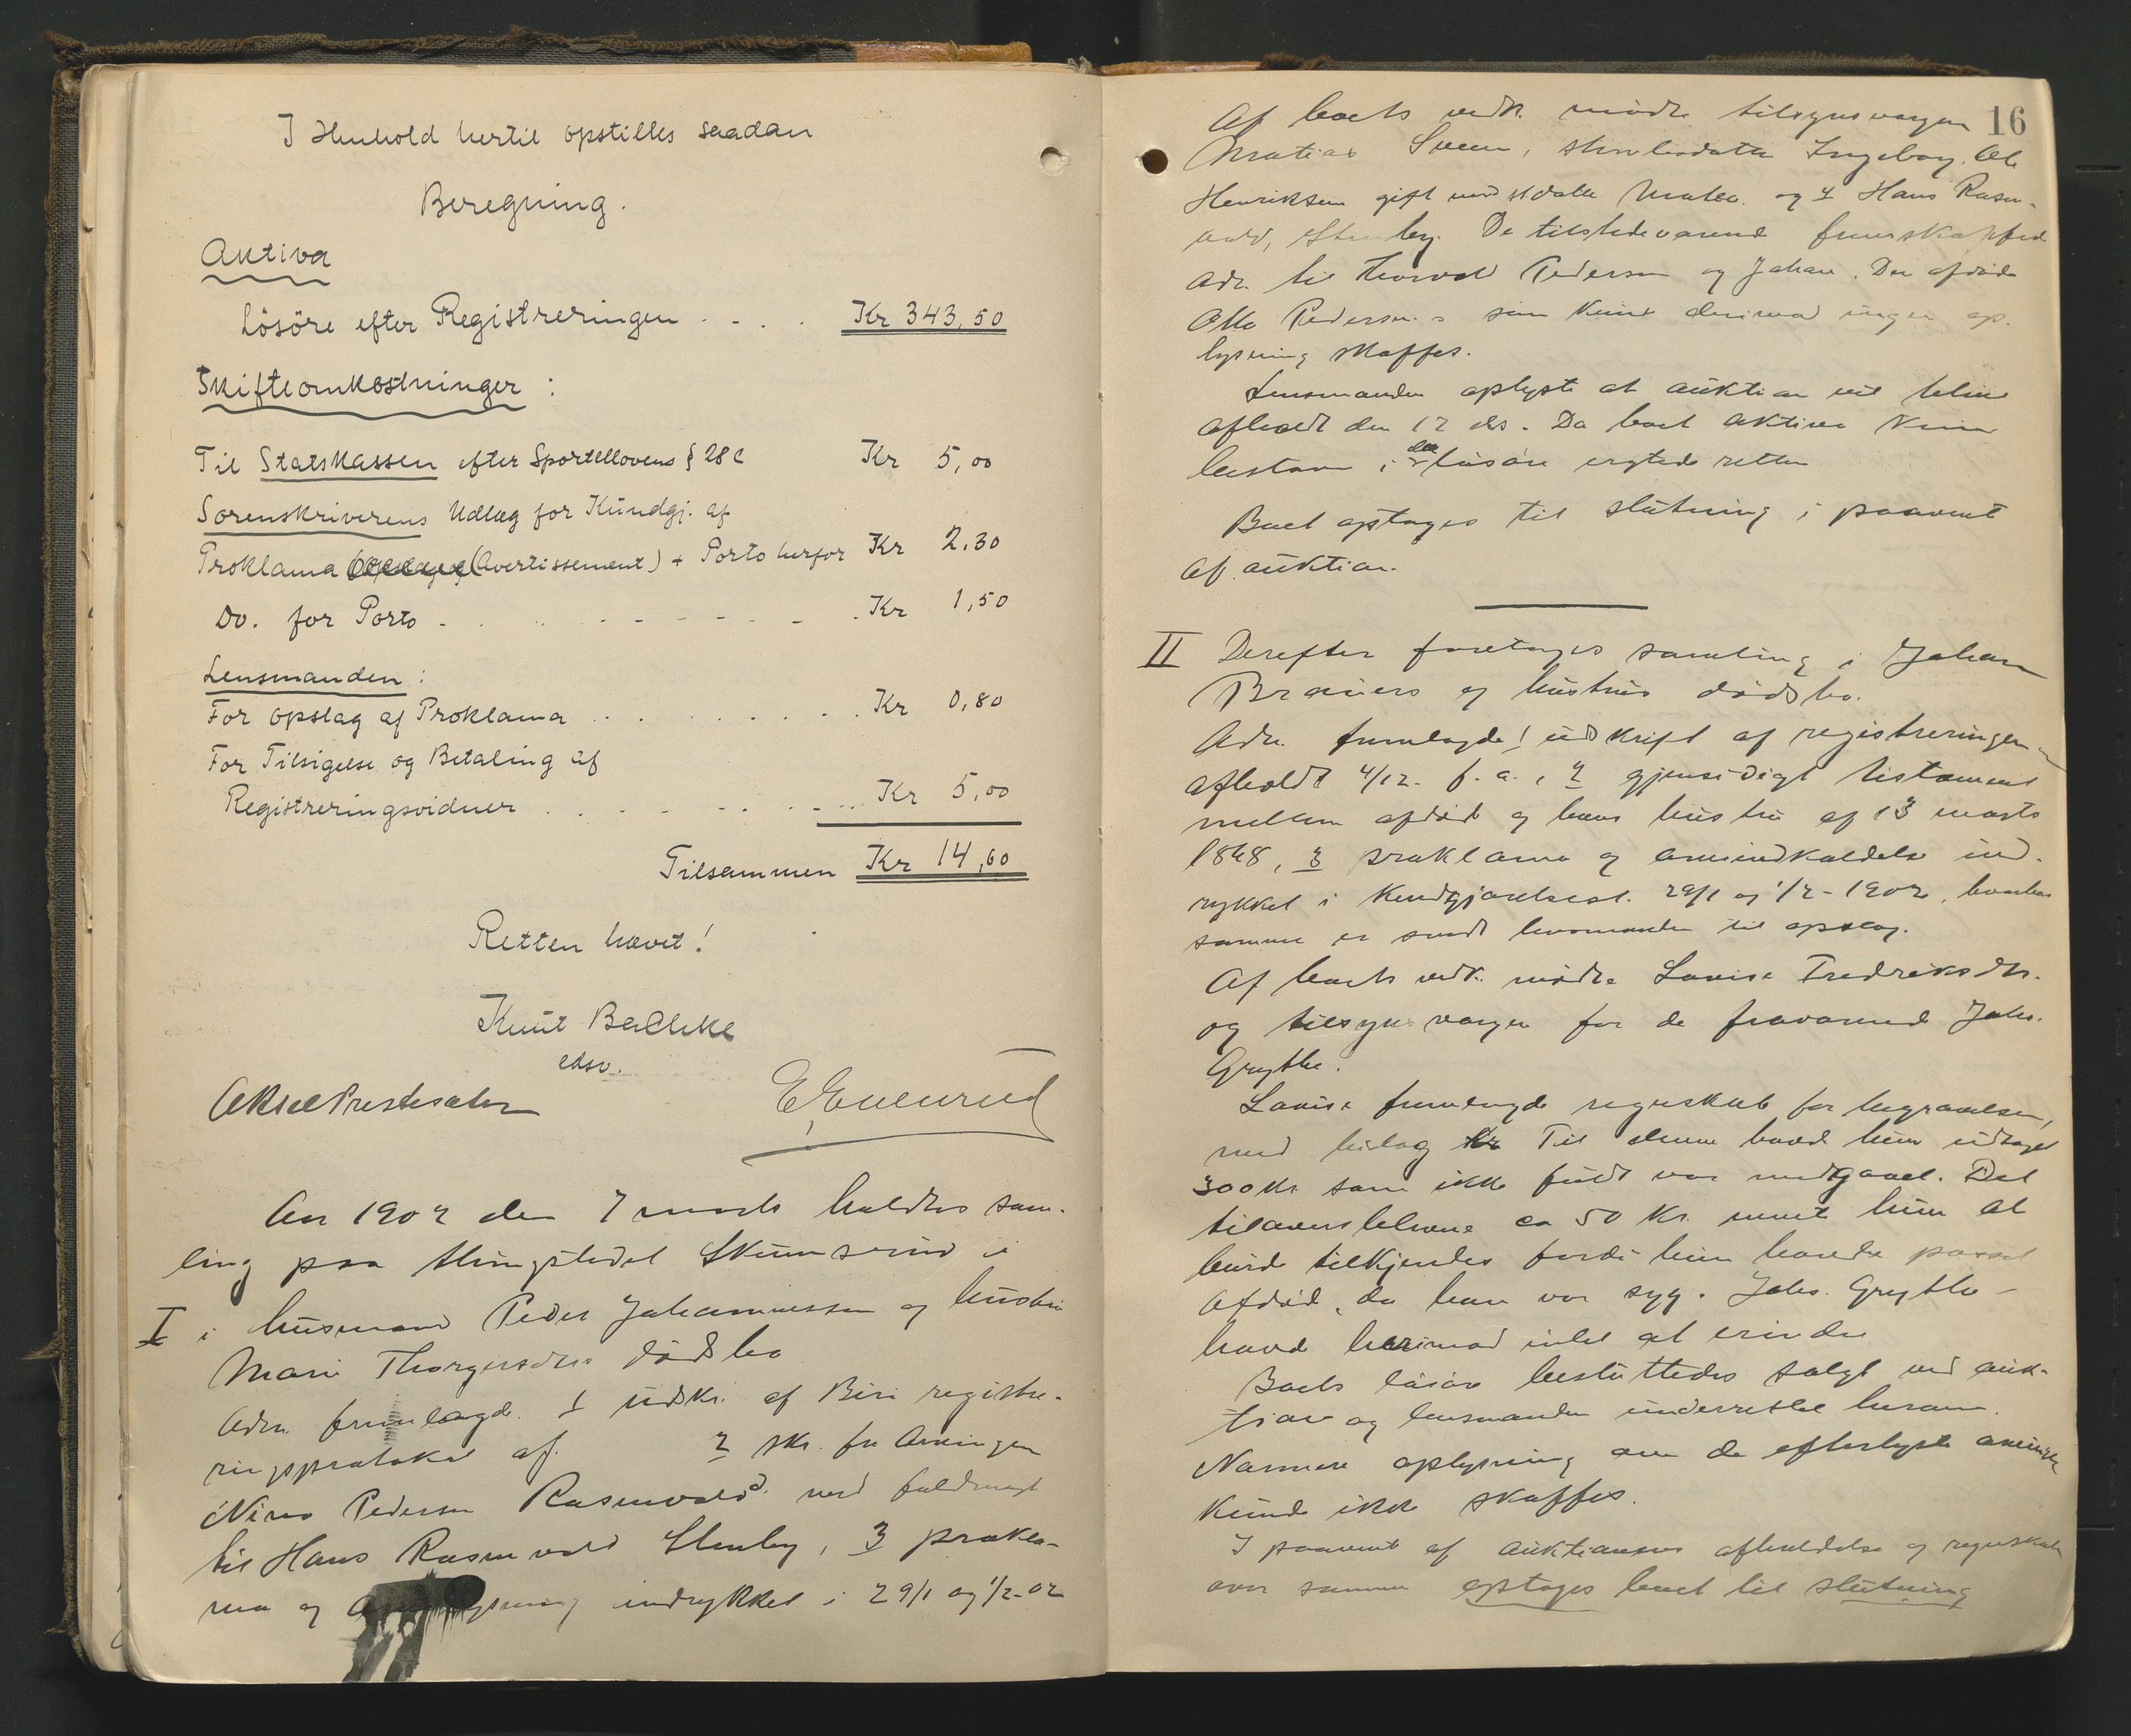 I Henhold hertil opstilles saadan
Beregning.
Aktiva
Lösöre efter Registreringen . . . . Kr 343,50
Skifteomkostninger :
Til Statskassen efter Sportellovens § 28 c Kr 5,00
Sorenskriverens Udlæg for Kundgj. af
Proklama (Avertissement) + Porto herfor Kr 2.30
Do. for Porto - . . . - - - - . Kr 1,50
Lensmanden :
For opslag af Proklama . . . . . . . . . Kr 0,80
For Tilsigelse og Betaling af
Registreringsvidner . . . - - . - . . . Kr 5,00
Tilsammen Kr 14,60
Retten hævet !
Knut Bachke
edsv.
Aksel Prestesater
Aar 1902 den 7 marts holdtes sam-
ling paa thingstedet Skumsrud i
I i husmand Peder Johannessen og hustru
Mari Thorgersdtrs dødsbo
Adm. fremlagde 1 udskr. af Biri registre-
ringsprotokol af 2 skr. fra Arvingen
Pedersen Rasmvold med fuldmagt
til Hans Rasmvold Stenby, 3 prokla-
ma og indrykket i 29/1 og 1/2-02
16
Af boets vedk. mødte tilsynsvergen
Matias Sveen, Ingeborg. Ole
Henriksen gift med Matea og 4 Hans Rasm-
vold, Stenby. De tilstedeværende
adr. til Thorvald Pedersen og Johan. Den afdøde
Otto Pedersens søn kunde derimod ingen op-
lysning skaffes.
Lensmanden oplyste at auktion vil blive
afholdt den 12 ds. Da boets aktiva kun
bestaar i løsøre retten
Boet optages til slutning i paavent
af auktion.
II Derefter foretages samling i Johan
Brauers og hustrus dødsbo.
Adm. fremlagde 1 udskrift af registreringen
afholdt 4/12 f. a., 2 gjensidigt testament
mellem afdøde og hans hustru af 13 marts
1868, 3 proklama og arveindkaldelse ind-
rykket i Kundgjørelsest. 29/1 og 1/2-1902, hvorhos
samme er sendt lensmanden til opslag.
Af boets vedk. mødte Lovise Fredriksdtr.
og tilsynsvergen for de fraværende Johs.
Grythe.
Lovise fremlagde regnskab for begravelsen,
med bilag Til denne havde hun udtaget
300 Kr. som ikke fuldt var medgaaet. Det
tiloversblevne ca 50 Kr. mente hun at
burde tilkjendes fordi hun havde passet
Afdøde, da han var syg. Johs. Grythe
havde herimod intet at erindre
Boets løsøre besluttedes solgt ved auk-
tion og lensmanden underrettet herom.
Nærmere oplysning om de efterlyste
kunde ikke skaffes.
I paavent af auktionens afholdelse og regnskab
over samme optages boet til slutning